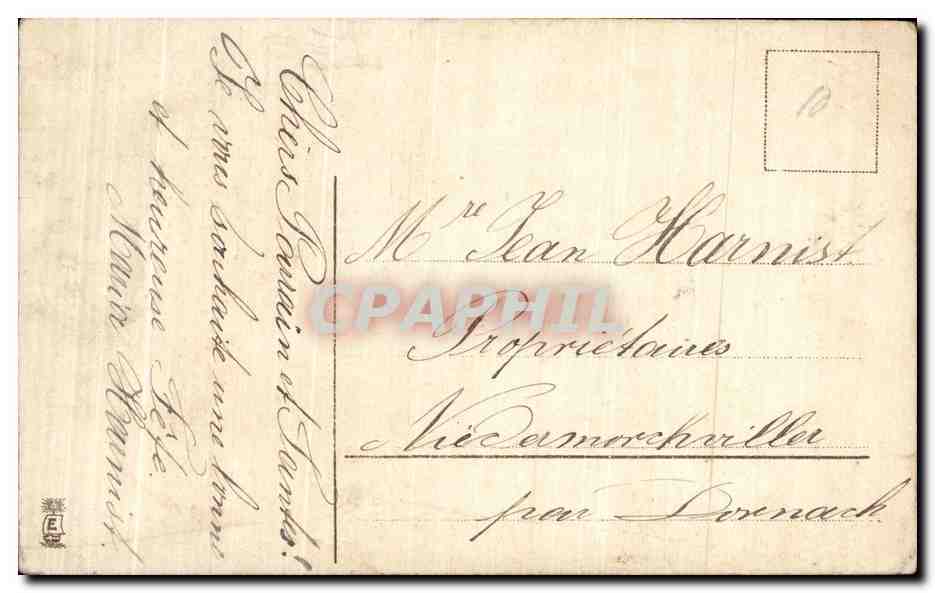 Chers Parain et Tantes!
Je vous souhaite une bonne
et heureuse Fête.
Harnist
10
Mre Jean Harnist
Propriétaires
Niedermorchviller
par Dornach
CPAPHIL
E